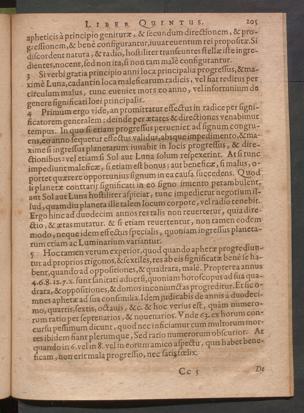 LIBER QUINTUS. 205
apheticis à principio genituræ, & secundum directionem, & pro-
gressionem, & benè configurantur, iuuat euentum rei propositæ. Si
discordent natura, & radio, hostiliter transeuntes stellæ iste ingre-
dientes, nocent, sed non ita, si non tam malè configurantur.
3 Si verbi gratia principio anni loca principalia progressus, & ma-
ximè Luna, cadant in loca maleficarum radicis, vel sint rediens per
circulum malus, tunc eueniet mors eo anno, vel infortunium de
genere significati loci principalis.
4 Primùm ergo vide, an promittatur effectus in radice per signi-
ficatorem generalem: deinde per ætates & directiones venabimur
tempus. In quo si etiam progressus peruenict ad signum congru-
ens, eo anno sequetur effectus validus, absque impedimento, & ma-
ximè si ingressus planetarum iuuabit in locis progressus, & dire-
ctionibus: vel etiam si Sol aut Luna solum respexerint. At si tunc
impediunt maleficæ, si etiam est bonus: aut beneficæ, si malus, o-
portet quærere opportunius signum in ea causa succedens. Quod
si planetæ contrarij significati in eo signo simento perambulent,
aut Sol aut Luna hostiliter aspiciat, tunc impedietur negotium il-
lud, quamdiu planeta ille talem locum corpore, vel radio tenebit.
Ergo hinc ad duodecim annos res talis non reuertetur, quia dire-
ctio, & ætas mutatur. & si etiam reuertentur, non tamen eodem
modo, neque idem effectus specialis, quoniam ingressus planeta-
rum etiam ac Luminarium variantur.
5 Hoc tamen verum experior, quod quando aphetæ progrediun-
tur ad proprios trigonos, & sextiles, res ab eis significatæ benè se ha-
bent, quando ad oppositiones, & quadrata, malè. Propterea annus
4.6.8.12.7.2. sunt sanitati aduersi, quoniam horoscopus ad sua qua-
drata, & oppositiones, & domos inconiunctas progreditur. Et sic o-
mnes aphetæ ad sua consimilia. Idem judicabis de annis à duodeci-
mo, quartis, sextis, octauis, &c. & hoc verius est, quàm numero-
rum ratio per septenarios, & nouenarios. Vnde 63. ex horum con-
cursu pessimum dicunt, quod nec inficiamur cum multorum mor-
tes ibidem fiant plerumque, Sed ratio numerorum obscurior. At
quando in 6. vel in 8. vel in eorum amico aspectu, quis habet bene-
ficam, non erit mala progressio, nec satis fœlix.
Cc 3 De